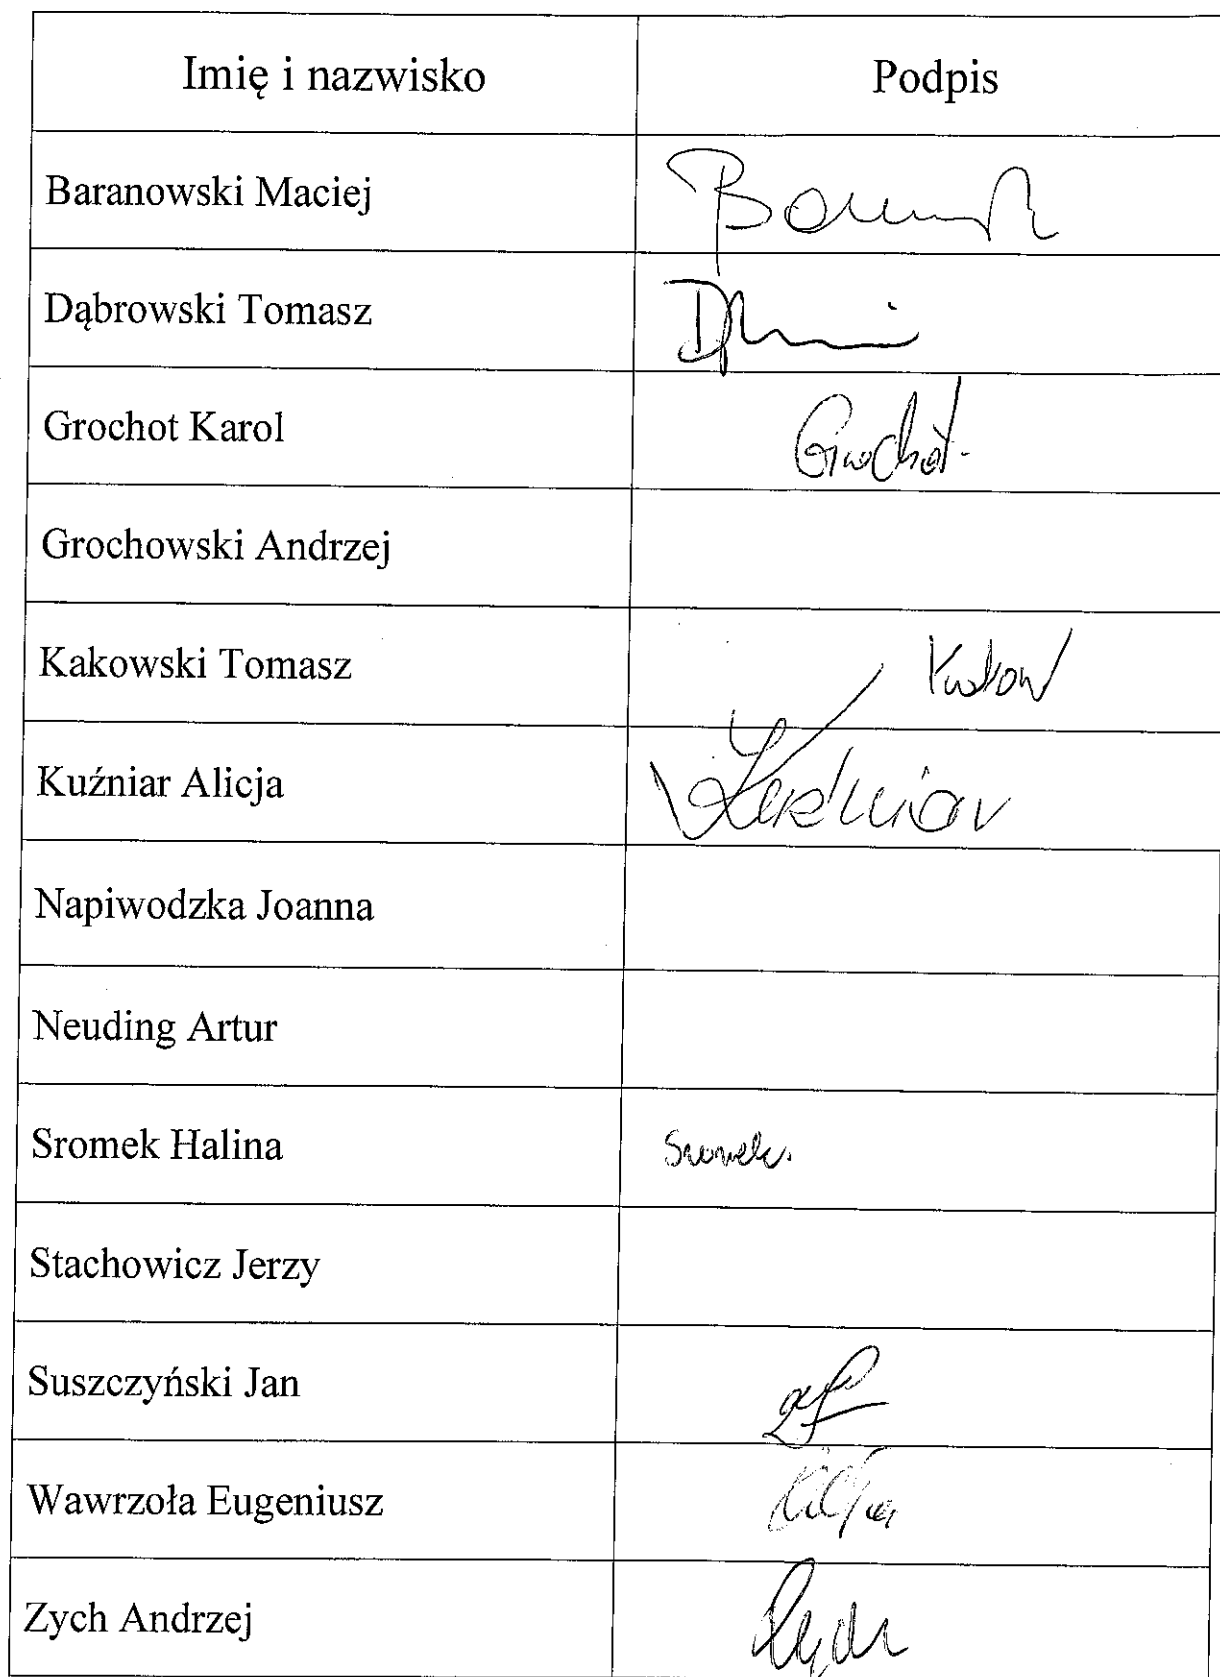 Imię i nazwisko Podpis
Baranowski Maciej
Dąbrowski Tomasz
Grochot Karol Grochot
Grochowski Andrzej
Kakowski Tomasz
Kuźniar Alicja Kuźniar
Napiwodzka Joanna
Neuding Artur
Sromek Halina Sromek
Stachowicz Jerzy
Suszczyński Jan
Wawrzoła Eugeniusz
Zych Andrzej